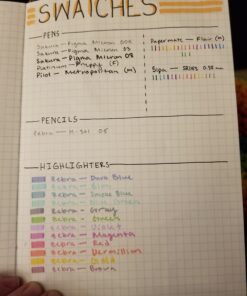 SWATCHES
PENS
Sakura - Pigma Micron 005
Sakura - Pigma Micron 03
Sakura - Pigma Micron 08
Platinum - Preppy (F)
Pilot - Metropolitan (M)
Papermate - Flair (M)
0.38 mm
PENCILS
Zebra - M-301 05
HIGHLIGHTERS
Zebra - Dark Blue
Zebra - Blue
Zebra - Smoke Blue
Zebra - Blue Green
Zebra - Gray
Zebra - Green
Zebra - Magenta
Zebra - Red
Zebra - Vermillion
Zebra - Gold
Zebra - Brown